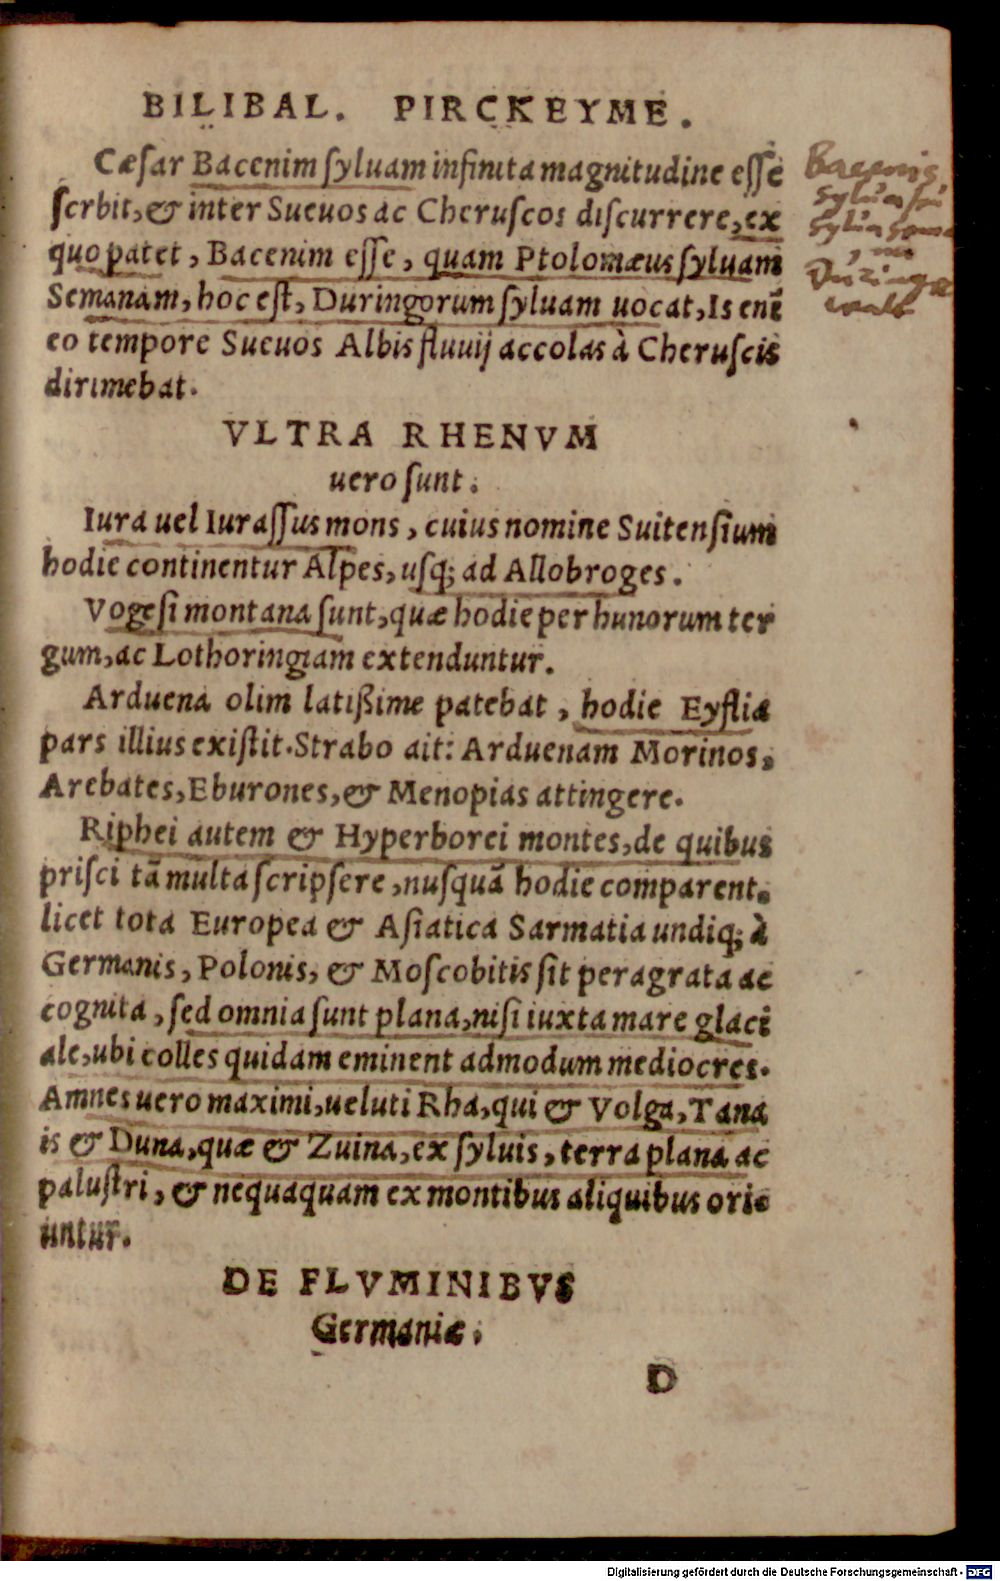 BILIBAL. PIRCKEYME.
Cæſar Bacenim ſyluam infinita magnitudine eſſe
ſcrbit, & inter Sueuos ac Cheruſcos diſcurrere, ex
quo patet, Bacenim eſſe, quam Ptolomæus ſyluam
Semanam, hoc eſt, Duringorum ſyluam uocat, Is enī
eo tempore Sueuos Albis fluuij accolas à Cheruſcis
dirimebat.
VLTRA RHENVM
uero ſunt.
Iura uel Iuraſſus mons, cuius nomine Suitenſium
hodie continentur Alpes, uſq; ad Allobroges.
Vogeſi montana ſunt, quæ hodie per hunorum ter
gum, ac Lothoringiam extenduntur.
Arduena olim latißime patebat, hodie Eyfliæ
pars illius exiſtit. Strabo ait: Arduenam Morinos,
Arebates, Eburones, & Menopias attingere.
Riphei autem & Hyperborei montes, de quibus
priſci tā multa ſcripſere, nuſquā hodie comparent.
licet tota Europea & Aſiatica Sarmatia undiq; à
Germanis, Polonis, & Moſcobitis ſit peragrata ac
cognita, ſed omnia ſunt plana, niſi iuxta mare glaci
ale, ubi colles quidam eminent admodum mediocres.
Amnes uero maximi, ueluti Rha, qui & Volga, Tana
is & Duna, quæ & Zuina, ex ſyluis, terra plana ac
paluſtri, & nequaquam ex montibus aliquibus ori
untur.
DE FLVMINIBVS
Germaniæ.
D
Bacenis,
sylua
sylua
Duringer
walt
Digitalisierung gefördert durch die Deutsche Forschungsgemeinschaft - DFG